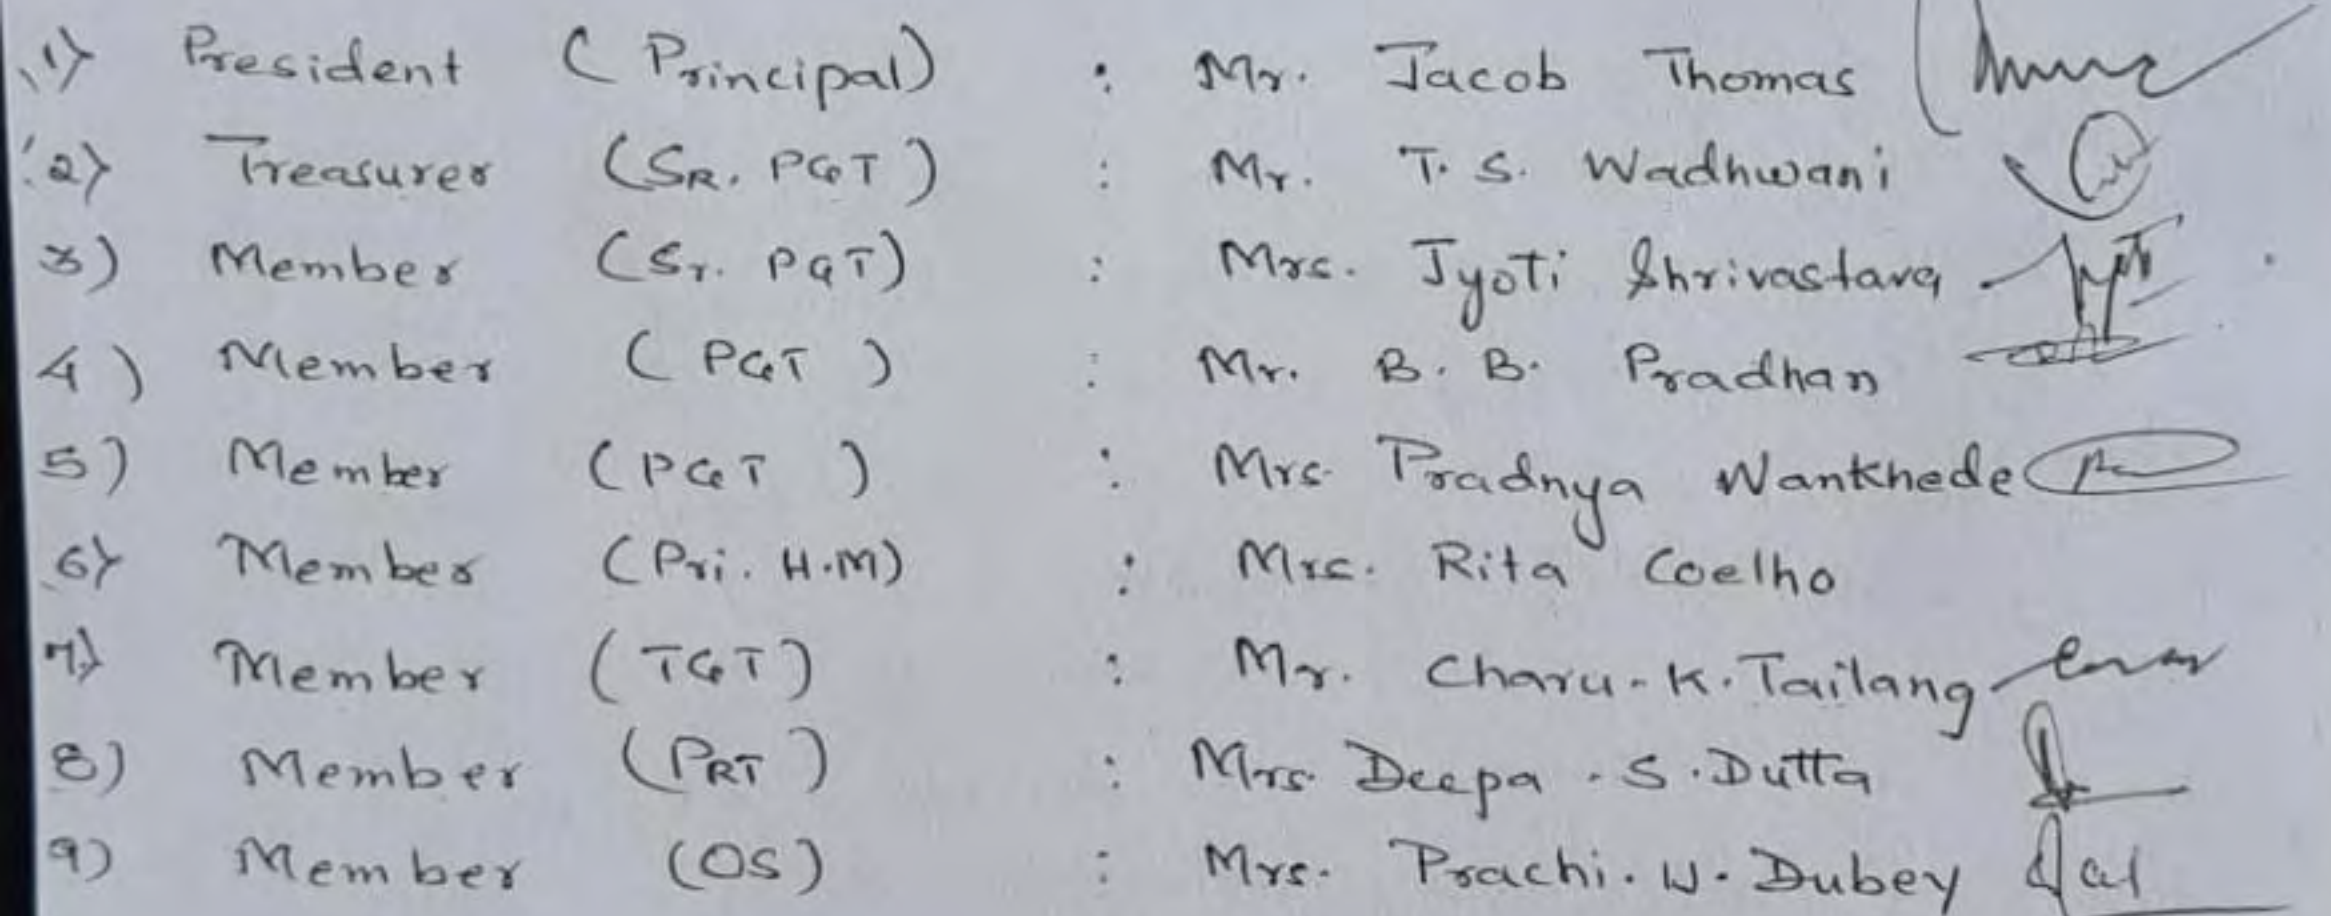 1) President (Principal) : Mr. Jacob Thomas
2) Treasurer (SR. PGT) : Mr. T. S. Wadhwani
3) Member (Sr. PGT) : Mrs. Jyoti Shrivastava
4) Member (PGT) : Mr. B. B. Pradhan
5) Member (PGT) : Mrs. Pradnya Wankhede
6) Member (Pri. H.M) : Mrs. Rita Coelho
7) Member (TGT) : Mr. Charu. K. Tailang
8) Member (PRT) : Mrs. Deepa . S. Dutta
9) Member (OS) : Mrs. Prachi. W. Dubey